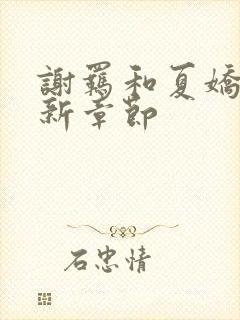 謝羈和夏嬌
新章節
石忠情